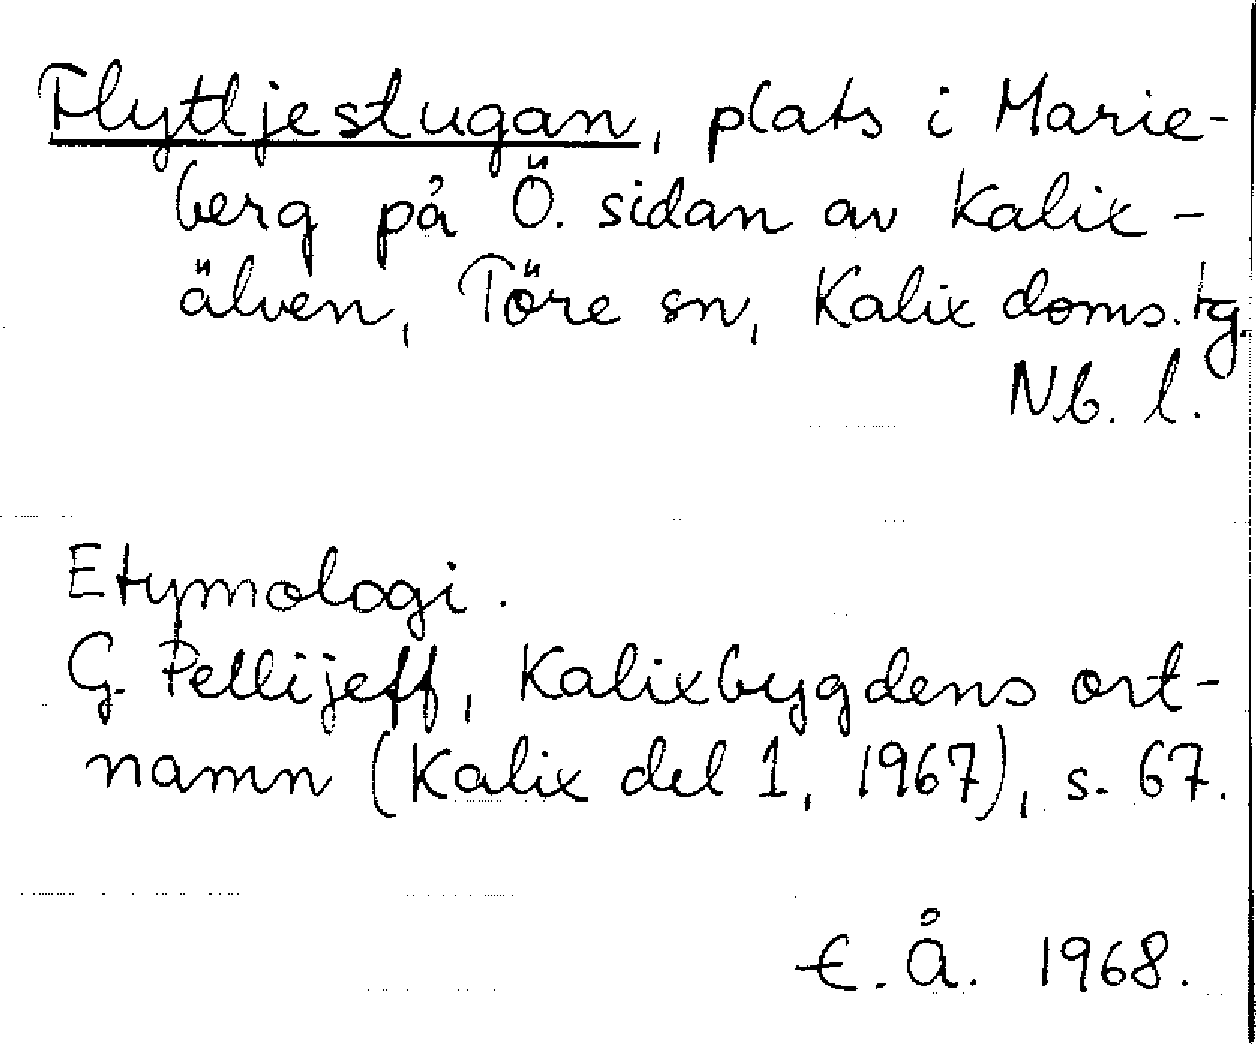 Flyttjestugan, plats i Marie-
berg på Ö. sidan av Kalix-
älven, Töre sn, Kalix doms.tg.
Nb. l.
Etymologi.
G. Pellijeff, Kalixbygdens ort-
namn (Kalix del 1, 1967), s. 67.
E. Å. 1968.